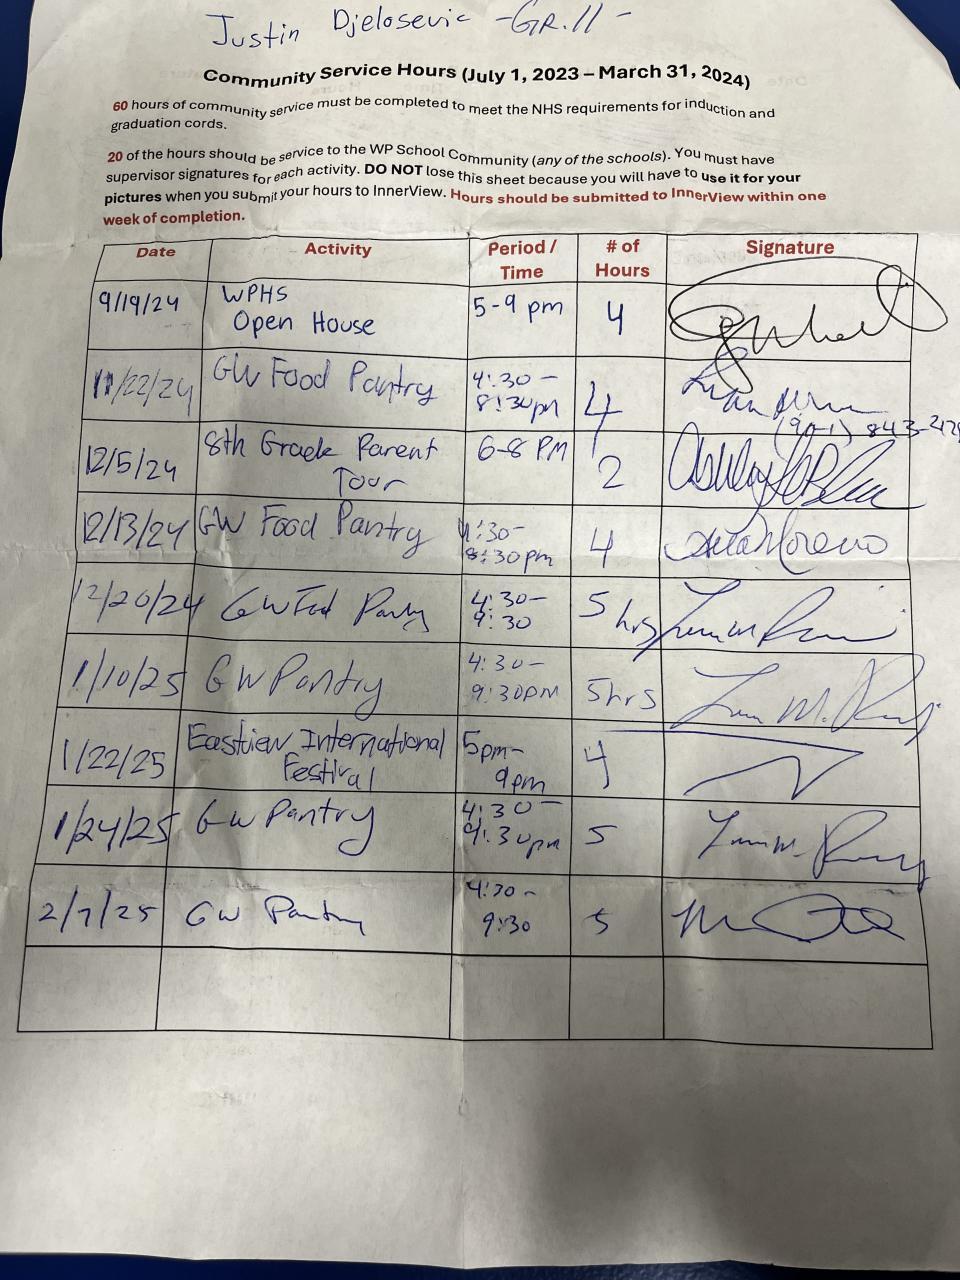 Justin Djelosevic -GR.11-
Community Service Hours (July 1, 2023 – March 31, 2024)
60 hours of community service must be completed to meet the NHS requirements for induction and
graduation cords.
20 of the hours should be service to the WP School Community (any of the schools). You must have
supervisor signatures for each activity. DO NOT lose this sheet because you will have to use it for your
pictures when you submit your hours to InnerView. Hours should be submitted to InnerView within one
week of completion.
Date Activity Period / Time # of Hours Signature
9/19/24 WPHS Open House 5-9 pm 4
11/22/24 GW Food Pantry 4:30 – 8:30pm 4
12/5/24 8th Grade Parent Tour 6-8 PM 2
12/13/24 GW Food Pantry 4:30- 8:30pm 4
12/20/24 GW Food Pantry 4:30- 9:30 5 hrs
1/10/25 GW Pantry 4:30- 9:30PM 5hrs
1/22/25 Eastview International Festival 5pm- 9pm 4
1/24/25 GW Pantry 4:30- 9:30pm 5
2/7/25 GW Pantry 4:30- 9:30 5